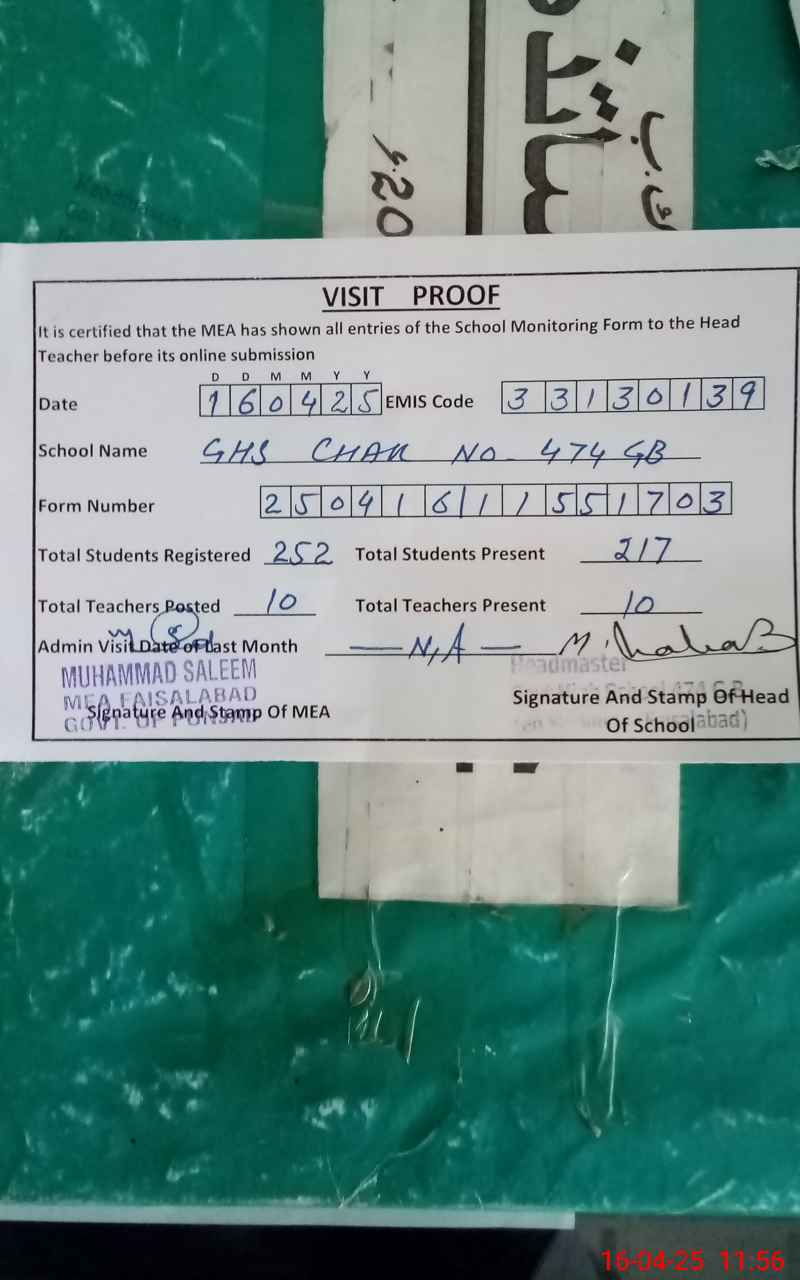 ساتذہ
ک.ب
VISIT PROOF
It is certified that the MEA has shown all entries of the School Monitoring Form to the Head
Teacher before its online submission
D D M M Y Y
Date 160425 EMIS Code 33130139
School Name GHS CHAK NO. 474 GB
Form Number 25041611551703
Total Students Registered 252 Total Students Present 217
Total Teachers Posted 10 Total Teachers Present 10
Admin Visit Date of Last Month — N,A —
MUHAMMAD SALEEM
MEA FAISALABAD
GOVT. OF PUNJAB
Signature And Stamp Of MEA
Headmaster
Signature And Stamp Of Head
Of School
16-04-25 11:56